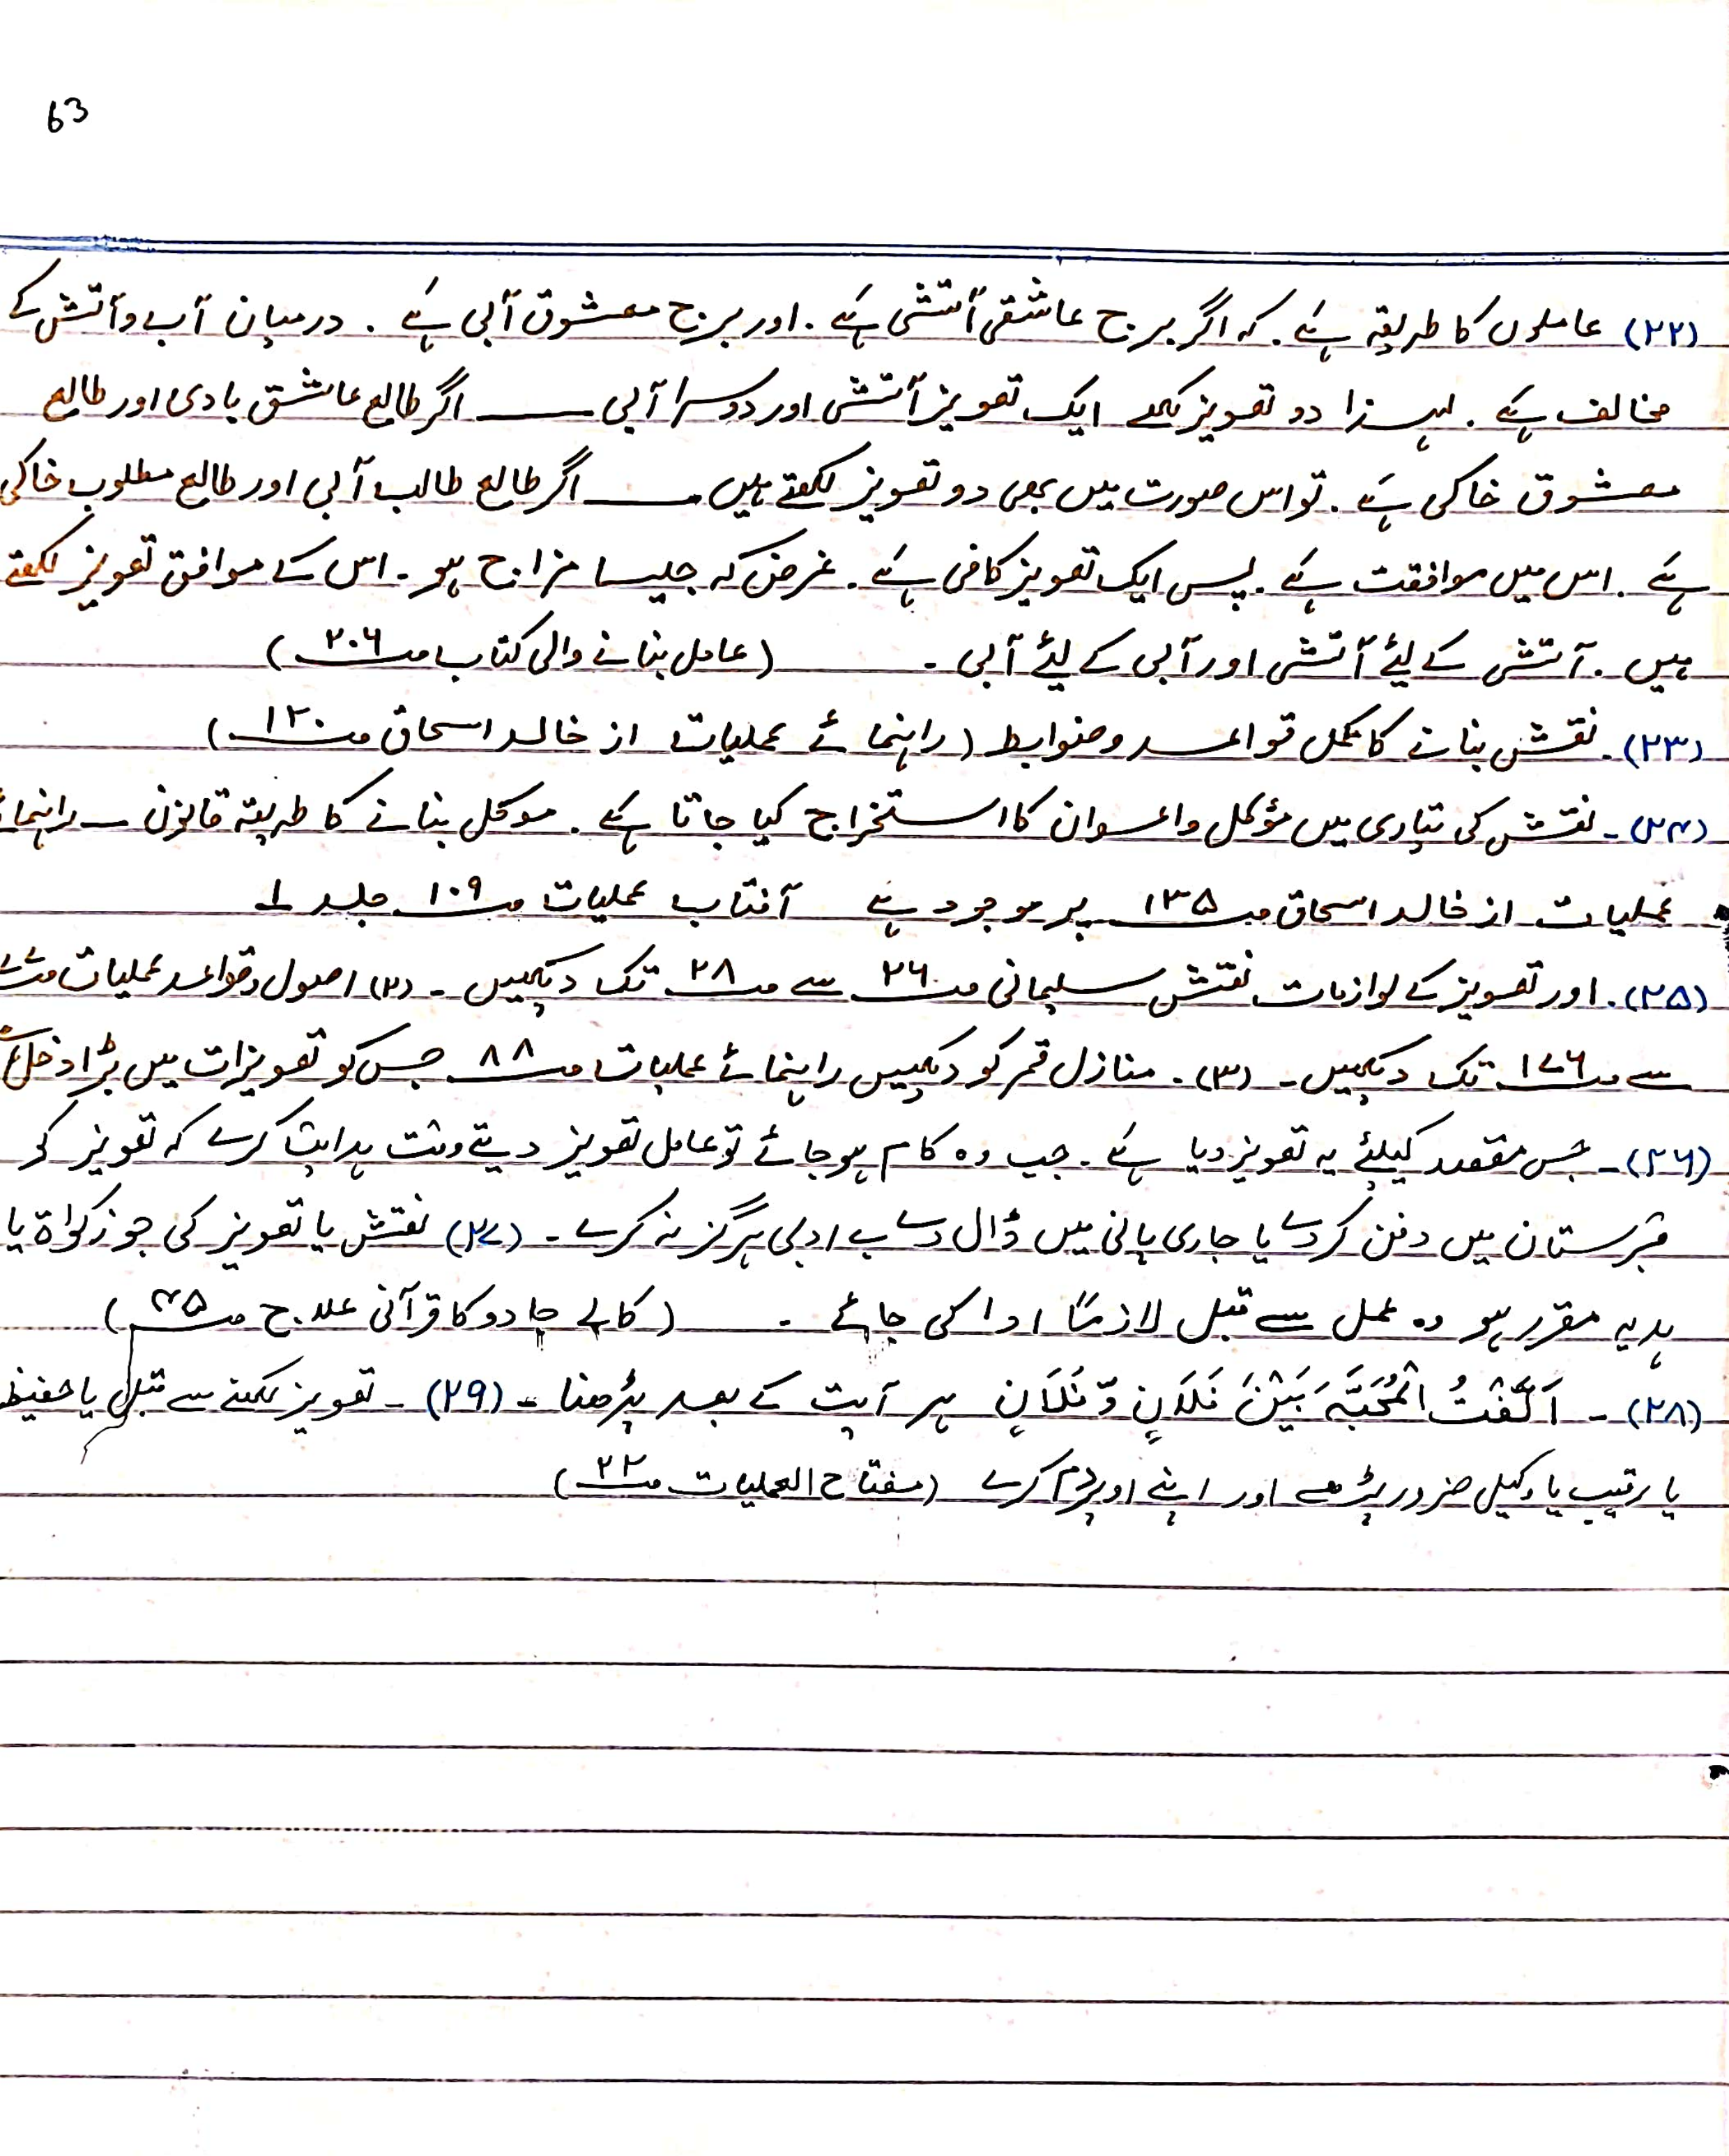 63
(۲۲) عاملوں کا طریقہ ہے۔ کہ اگر برج عاشقی آتشی ہے۔ اور برج معشوق آبی ہے۔ درمیان آب وآتش کے
مخالف ہے۔ لہٰذا دو تعویز لکھے ایک تعویز آتشی اور دوسرا آبی ــــ اگر طالع عاشق بادی اور طالع
معشوق خاکی ہے۔ تو اس صورت میں بھی دو تعویز لکھتے ہیں ــــ اگر طالع طالب آبی اور طالع مطلوب خاکی
ہے۔ اس میں موافقت ہے۔ پس ایک تعویز کافی ہے۔ غرض کہ جیسا مزاج ہو۔ اس کے موافق تعویز لکھتے
ہیں۔ آتشی کے لئے آتشی اور آبی کے لئے آبی۔ (عامل بنانے والی کتاب صـ۲۰۶)
(۲۳)۔ نقش بنانے کا مکمل قواعد وضوابط (راہنمائے عملیات از خالد اسحاق صـ۱۲۰)
(۲۴)۔ نقش کی تیاری میں مؤکل واعوان کا استخراج کیا جاتا ہے۔ موکل بنانے کا طریقہ قانون ــ راہنمائے
عملیات از خالد اسحاق صـ۱۳۵ پر موجود ہے آفتاب عملیات صـ۱۰۹ جلد ۱
(۲۵)۔ اور تعویز کے لوازمات نقش سلیمانی صـ۲۶ سے صـ۲۸ تک دیکھیں۔ (۲) اصول وقواعد عملیات
سے صـ۱۷۶ تک دیکھیں۔ (۳)۔ منازل قمر کو دیکھیں راہنمائے عملیات صـ۸۸ جس کو تعویزات میں بڑا دخل ہے
(۲۶)۔ جس مقصد کیلئے یہ تعویز دیا ہے۔ جب وہ کام ہوجائے تو عامل تعویز دیتے وقت ہدایت کرے کہ تعویز کو
قبرستان میں دفن کردے یا جاری پانی میں ڈال دے بے ادبی ہرگز نہ کرے۔ (۲۷) نقش یا تعویز کی جو زکواۃ یا
ہدیہ مقرر ہو وہ عمل سے قبل لازماً ادا کی جائے۔ (کالے جادو کا قرآنی علاج صـ۴۵)
(۲۸)۔ اَلَّفْتُ الْمُحَبَّۃَ بَیْنَ فَلَانٍ وَّ فَلَانٍ ہر آیت کے بعد پڑھنا۔ (۲۹)۔ تعویز لکھنے سے قبل یا حفیظ
یا رقیب یا وکیل ضرور پڑھے اور اپنے اوپر دم کرے (مفتاح العملیات صـ۲۲)